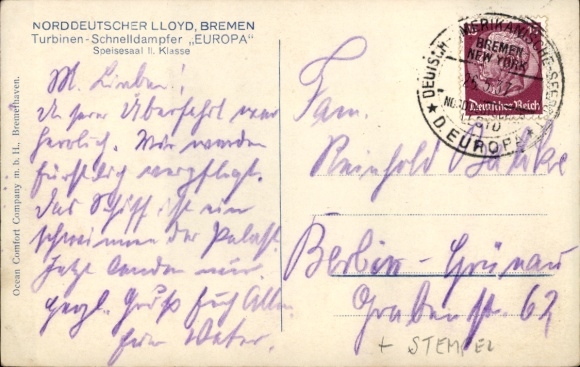 NORDDEUTSCHER LLOYD, BREMEN
Turbinen-Schnelldampfer „EUROPA"
Speisesaal II. Klasse
M. Lieben!
Unsere Überfahrt war
herrlich. Wir werden
fürstlich verpflegt.
Das Schiff ist ein
schwimmender Palast.
Jetzt landen wir.
Herzl. Gruß Euch Allen
Euer Vater.
Ocean Comfort Company m. b. H., Bremerhaven.
DEUTSCH-AMERIKANISCHE SEEPOST
BREMEN
NEW YORK
LLOYD
★ D. EUROPA ★
Deutsches Reich
Fam.
Reinhold
Berlin-Grünau
Grabenstr. 62
+ STEMPEL